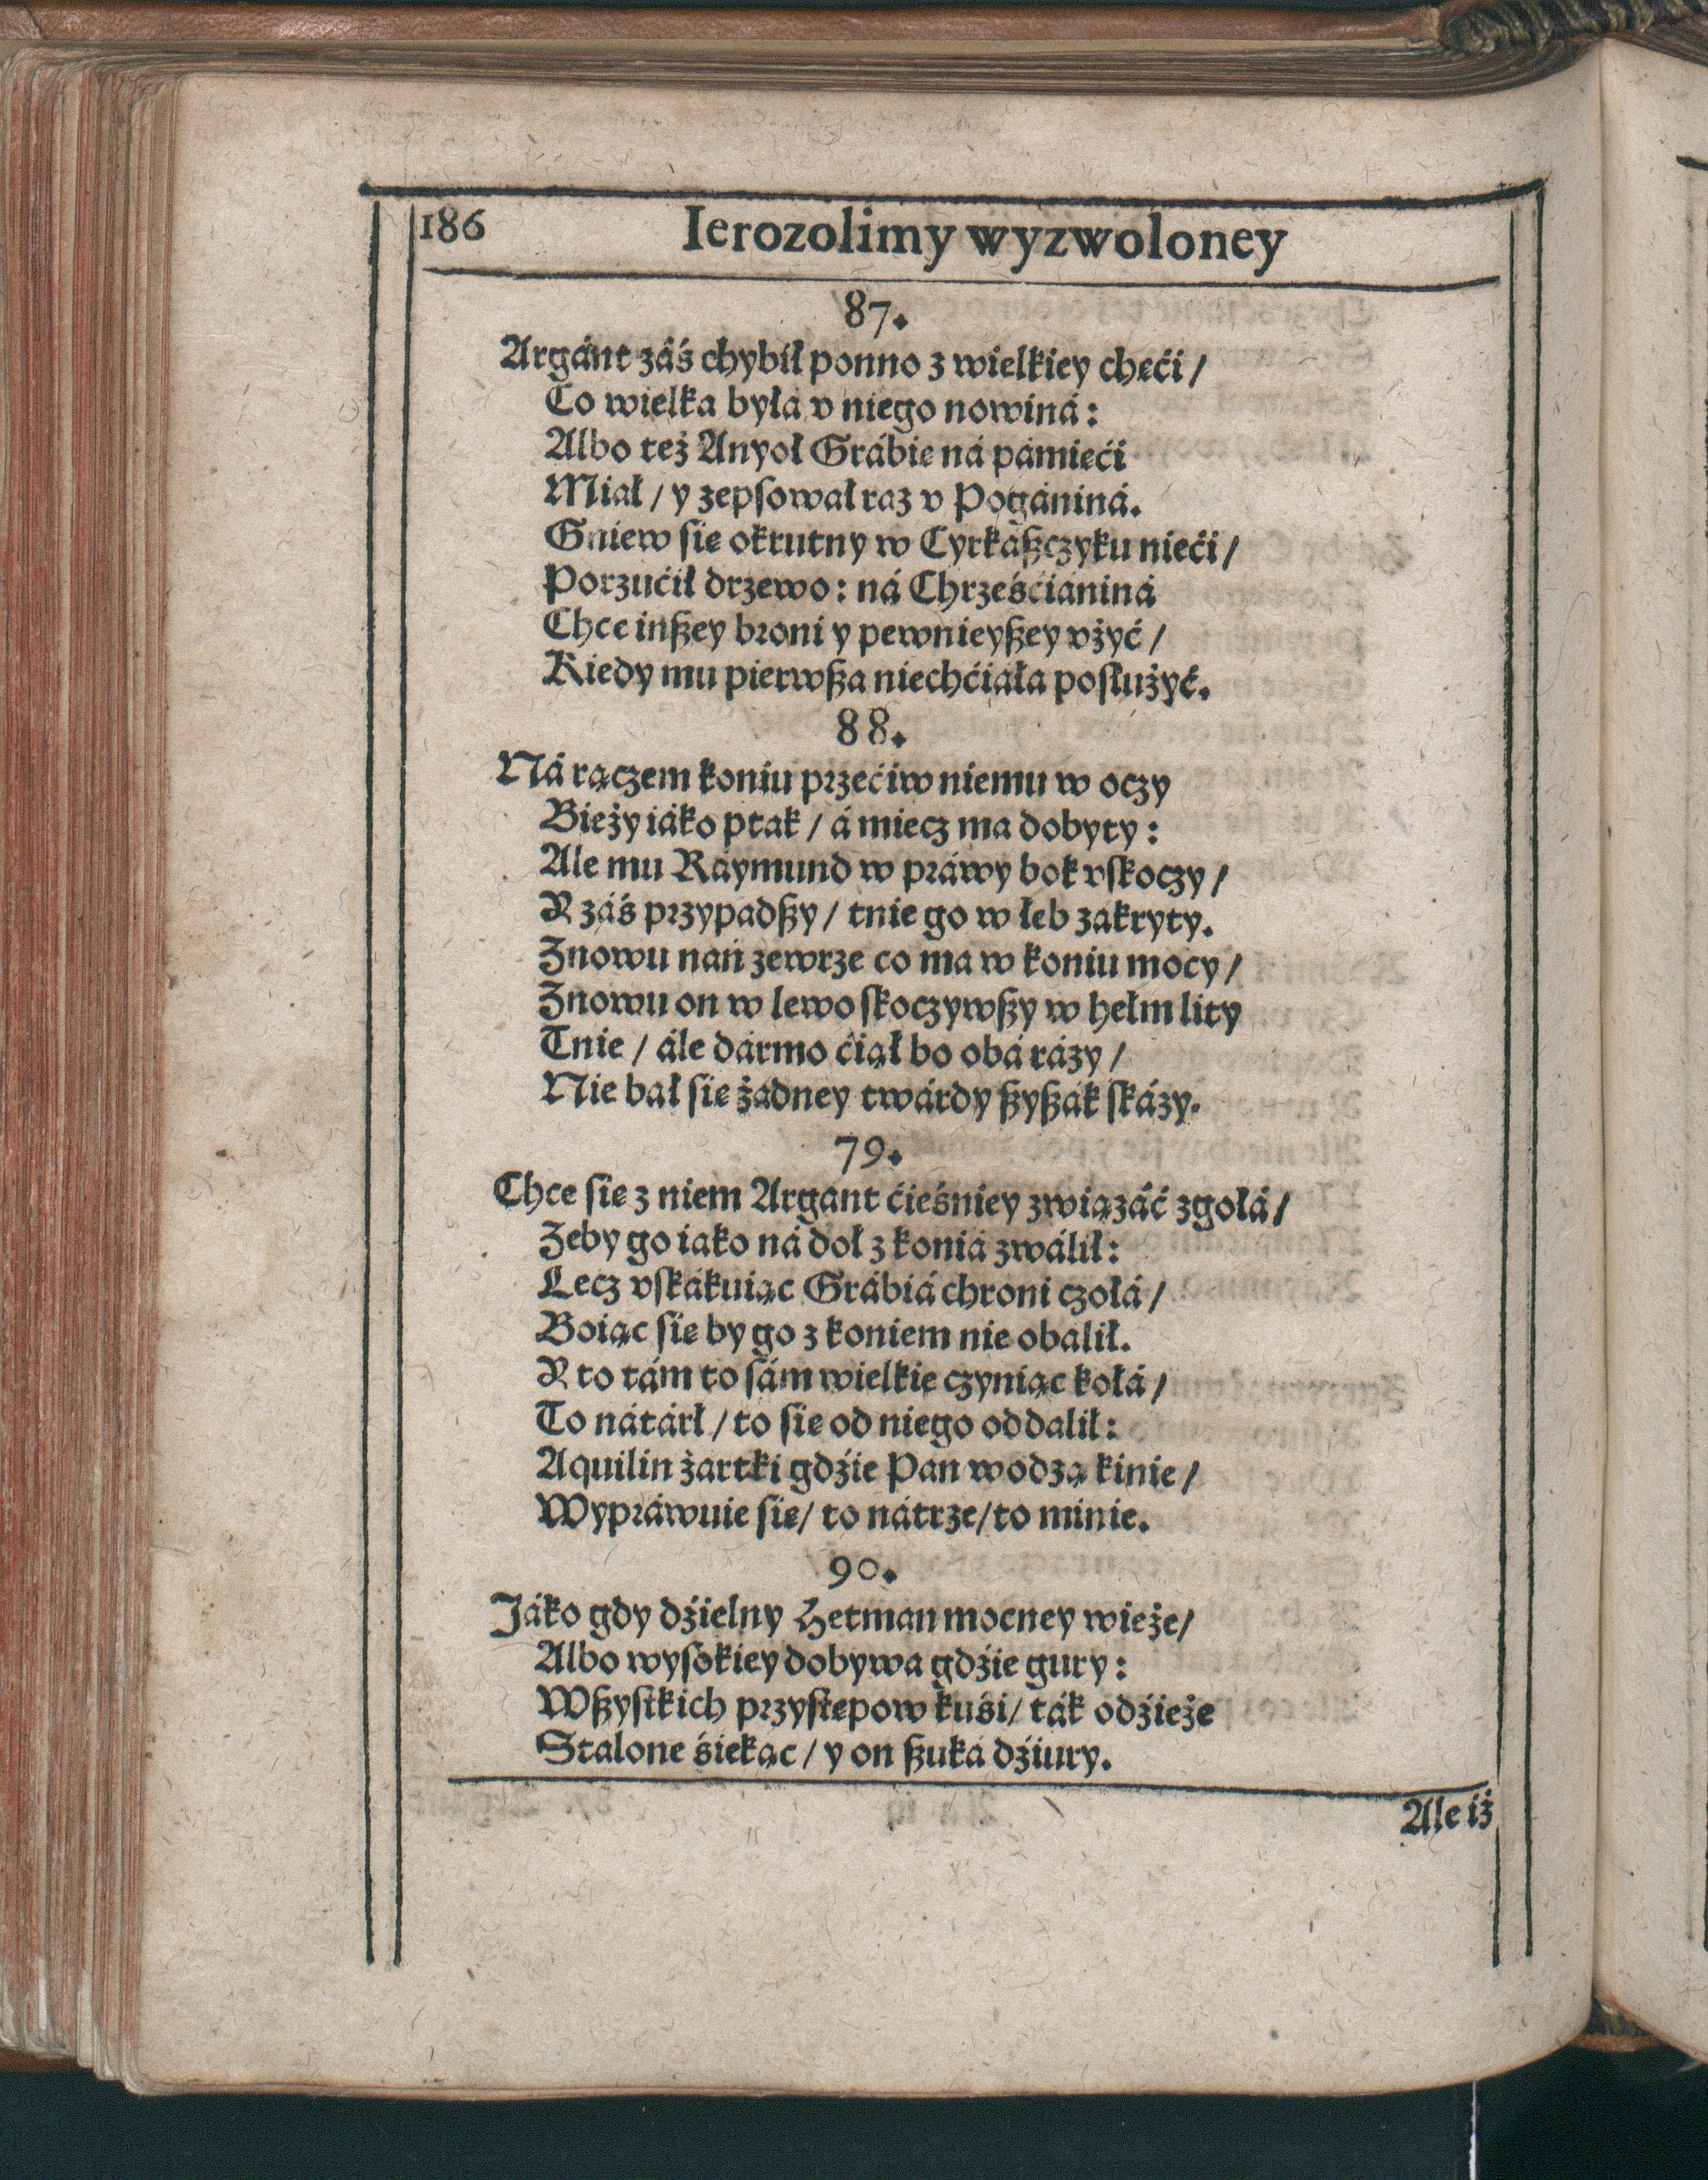 186 Ierozolimy wyzwoloney
87.
Argánt záś chybił ponno z wielkiey chęći /
Co wielka byłá v niego nowiná:
Albo też Anyoł Grábię ná pámięći
Miał / y zepsował raz v Pogániná.
Gniew się okrutny w Cyrkászczyku nieći /
Porzućił drzewo: ná Chrześćianiná
Chce inszey broni y pewnieyszey vżyć /
Kiedy mu pierwsza niechćiáła posłużyć.
88.
Ná rączem koniu przećiw niemu w oczy
Bieży iáko ptak / á miecz ma dobyty:
Ale mu Ráymund w práwy bok vskoczy /
Y záś przypadszy / tnie go w łeb zakryty.
Znowu nań zewrze co ma w koniu mocy /
Znowu on w lewo skoczywszy w hełm lity
Tnie / ále dármo ćiął bo obá rázy /
Nie bał się żadney twárdy szyszák skázy.
79.
Chce się z niem Argant ćieśniey związáć zgołá /
Zeby go iako ná doł z koniá zwálił:
Lecz vskákuiąc Grábiá chroni czołá /
Boiąc się by go z koniem nie obalił.
Y to tám to sám wielkie czyniąc kołá /
To nátárł / to się od niego oddalił:
Aquilin żartki gdźie Pan wodzą kinie /
Wypráwuie się / to nátrze / to minie.
90.
Jáko gdy dźielny Hetman mocney wieże /
Albo wysokiey dobywa gdźie gury:
Wszystkich przystępow kuśi / ták odźieże
Stalone śiekąc / y on szuka dźiury.
Ale iż